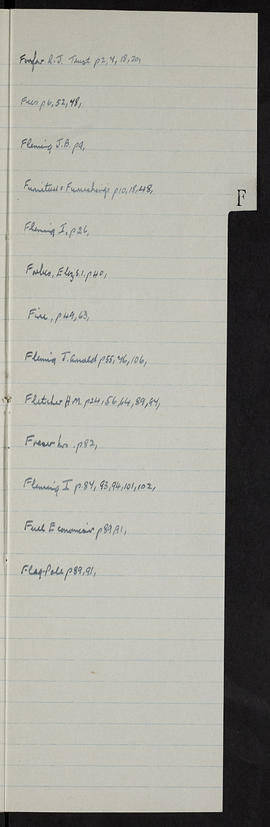 Forfar R.J. Trust p2,4,18,20,
Fees p6,52,48,
Fleming J.B. p9,
F
Furniture & Furnishings p10,18,48,
Fleming I, p26,
Forbes, Eliz. p40,
Fire, p49,63,
Fleming J. Arnold p55,76,106,
Fletcher H.M. p24,56,64,89,94,
Fraser p82,
Fleming I p.84,93,94,101,102,
Fuel Economies p89,91,
Flag-Pole p89,91,